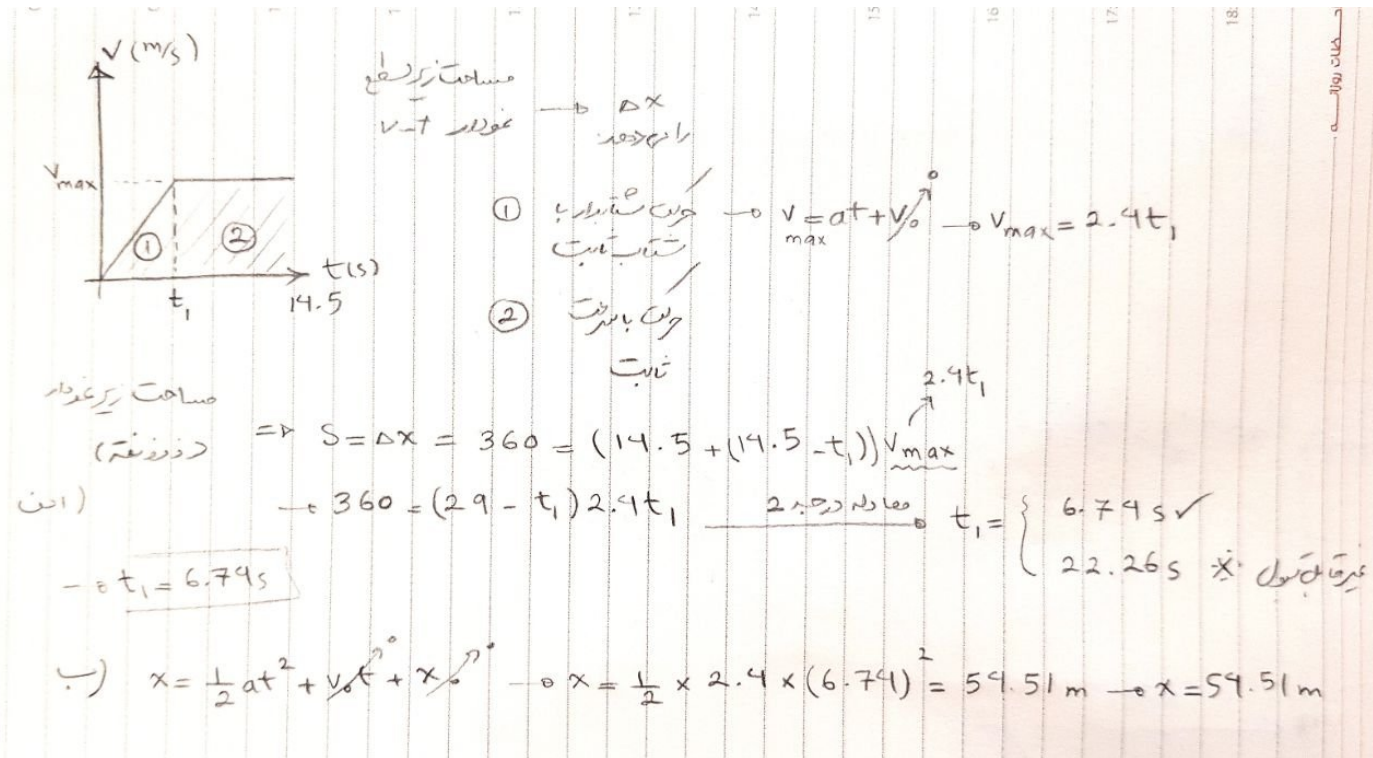 V (m/s)
Vmax
① ②
t(s)
t₁ 14.5
مساحت زیر سطح
نمودار v-t → Δx
را می‌دهد
① حرکت شتابدار با شتاب ثابت → v max = at + v₀ ↗ 0 → v max = 2.4t₁
② حرکت با سرعت ثابت
مساحت زیر نمودار
(ذوزنقه) ⇒ S = Δx = 360 = (14.5 + (14.5 - t₁)) Vmax ↗ 2.4t₁
الف) → 360 = (29 - t₁) 2.4t₁ معادله درجه 2 → t₁ = { 6.74 s ✓
22.26 s ✗ غیر قابل قبول
→ t₁ = 6.74 s
ب) x = 1/2 at² + v₀t ↗ 0 + x₀ ↗ 0 → x = 1/2 × 2.4 × (6.74)² = 54.51 m → x = 54.51 m
13 14 15 16 17 18